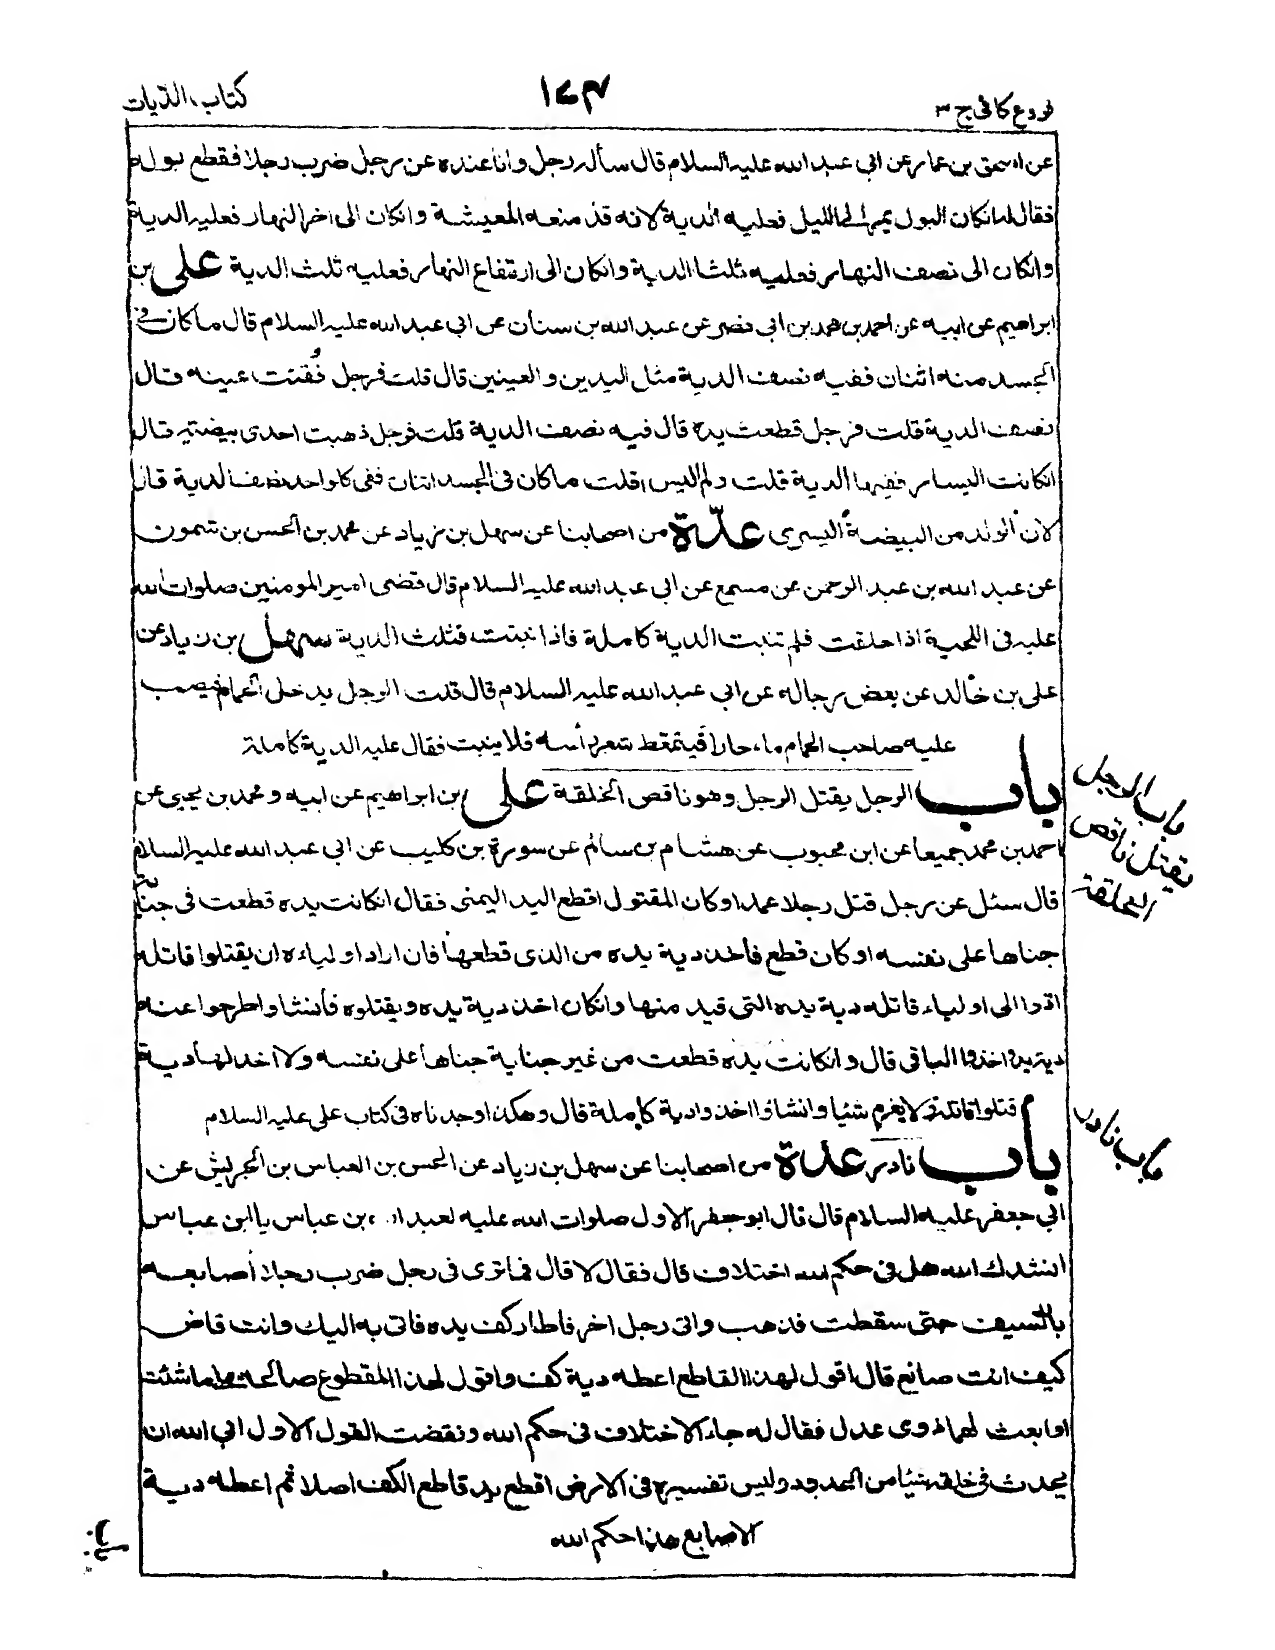 فروع كافى ج ٣
١٤٣
كتاب الديات
عن اسحق بن عمار عن ابي عبد الله عليه السلام قال سأله رجل وانا عنده عن رجل ضرب رجلا فقطع بوله
فقال له ان كان البول يمر الى الليل فعليه الدية لانه قد منعه المعيشة وانكان الى اخر النهار فعليه الدية
وانكان الى نصف النهار فعليه ثلثا الدية وانكان الى ارتفاع النهار فعليه ثلث الدية على بن
ابراهيم عن ابيه عن احمد بن محمد بن ابي نصر عن عبد الله بن سنان عن ابي عبد الله عليه السلام قال ماكان في
الجسد منه اثنان ففيه نصف الدية مثل اليدين والعينين قال قلت فرجل فقئت عينه قال
نصف الدية قلت فرجل قطعت يده قال فيه نصف الدية قلت فرجل ذهبت احدى بيضتيه قال
انكانت اليسار ففيها الدية قلت ولم اليس اقلت ماكان فى الجسد اثنان ففى كل واحد نصف الدية قال
لان الولد من البيضة اليسرى عدّة من اصحابنا عن سهل بن زياد عن محمد بن الحسن بن شمون
عن عبد الله بن عبد الرحمن عن مسمع عن ابي عبد الله عليه السلام قال قضى امير المومنين صلوات الله
عليه فى اللحية اذا حلقت فلم تنبت الدية كاملة فاذا نبتت فثلث الدية سهل بن زياد عن
على بن خالد عن بعض رجاله عن ابي عبد الله عليه السلام قال قلت الرجل يدخل الحمام فيصب
عليه صاحب الحمام ماء حارا فيتمعط شعر رأسه فلا ينبت فقال عليه الدية كاملة
باب الرجل يقتل الرجل وهو ناقص الخلقة على بن ابراهيم عن ابيه ومحمد بن يحيى عن
احمد بن محمد جميعا عن ابن محبوب عن هشام بن سالم عن سورة بن كليب عن ابي عبد الله عليه السلام
قال سئل عن رجل قتل رجلا عمدا وكان المقتول اقطع اليد اليمنى فقال انكانت يده قطعت فى جناية
جناها على نفسه او كان قطع فاخذ دية يده من الذى قطعها فان اراد اولياءه ان يقتلوا قاتله
ادوا الى اولياء قاتله دية يده التى قيد منها وانكان اخذ دية يده ويقتلوه فأنشاوا طرحوا عنه
دية يده اخذوا الباقى قال وانكانت يده قطعت من غير جناية جناها على نفسه ولا اخذ لها دية
قتلوا قاتله ولا يغرم شيئا وانشاؤا اخذوا دية كاملة قال وهكذا وجدناه فى كتاب على عليه السلام
باب نادر عدة من اصحابنا عن سهل بن زياد عن الحسن بن العباس بن الجريش عن
ابي جعفر عليه السلام قال قال ابو جعفر الاول صلوات الله عليه لعبد الله بن عباس يا ابن عباس
انشدك الله هل فى حكم الله اختلاف قال فقال لا قال فما ترى فى رجل ضرب رجلا أصابعه
بالسيف حتى سقطت فذهب واتى رجل اخر فاطار كف يده فاتى به اليك وانت قاض
كيف انت صانع قال اقول لهذا القاطع اعطه دية كف واقول لهذا المقطوع صالحه على ما شئت
او ابعث لهما ذوى عدل فقال له جاء الاختلاف فى حكم الله ونقضت القول الاول ابى الله ان
يحدث فى خلقه شيئا من الحدود وليس تفسيره فى الارض اقطع يد قاطع الكف اصلا ثم اعطه دية
الاصابع هذا حكم الله
باب الرجل
يقتل ناقص
الخلقة
باب نادر